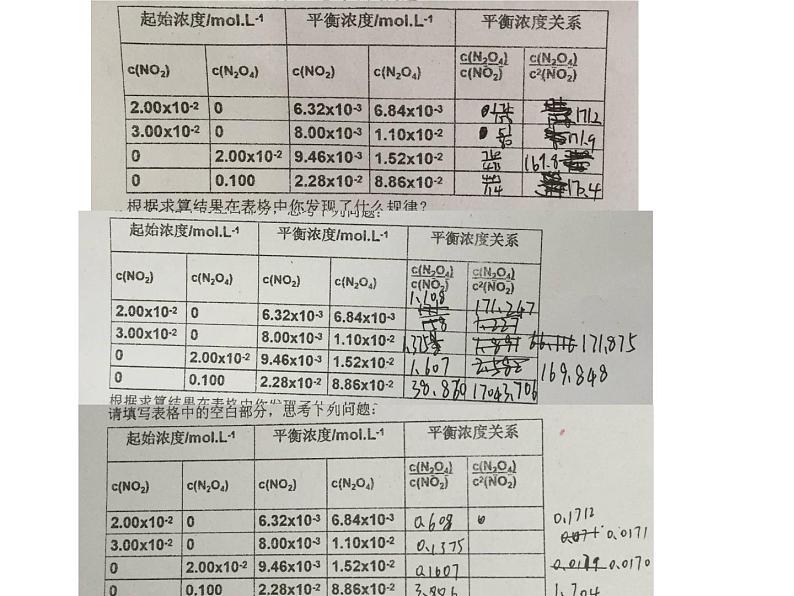 起始浓度/mol.L-1 平衡浓度/mol.L-1 平衡浓度关系
c(NO2) c(N2O4) c(NO2) c(N2O4) c(N2O4)/c(NO2) c(N2O4)/c2(NO2)
2.00x10-2 0 6.32x10-3 6.84x10-3 171.2
3.00x10-2 0 8.00x10-3 1.10x10-2 51/80 171.9
0 2.00x10-2 9.46x10-3 1.52x10-2 169.8
0 0.100 2.28x10-2 8.86x10-2
根据求算结果在表格中你发现了什么规律?
起始浓度/mol.L-1 平衡浓度/mol.L-1 平衡浓度关系
c(NO2) c(N2O4) c(NO2) c(N2O4) c(N2O4)/c(NO2) c(N2O4)/c2(NO2)
2.00x10-2 0 6.32x10-3 6.84x10-3 1.108 171.247
3.00x10-2 0 8.00x10-3 1.10x10-2 171.875
0 2.00x10-2 9.46x10-3 1.52x10-2 1.607 169.848
0 0.100 2.28x10-2 8.86x10-2 38.860 17043.706
请填写表格中的空白部分,思考下列问题:
起始浓度/mol.L-1 平衡浓度/mol.L-1 平衡浓度关系
c(NO2) c(N2O4) c(NO2) c(N2O4) c(N2O4)/c(NO2) c(N2O4)/c2(NO2)
2.00x10-2 0 6.32x10-3 6.84x10-3 0.608 0.1712
3.00x10-2 0 8.00x10-3 1.10x10-2 0.1375 0.0171
0 2.00x10-2 9.46x10-3 1.52x10-2 0.1607 0.0170
0 0.100 2.28x10-2 8.86x10-2 3.886 1.704